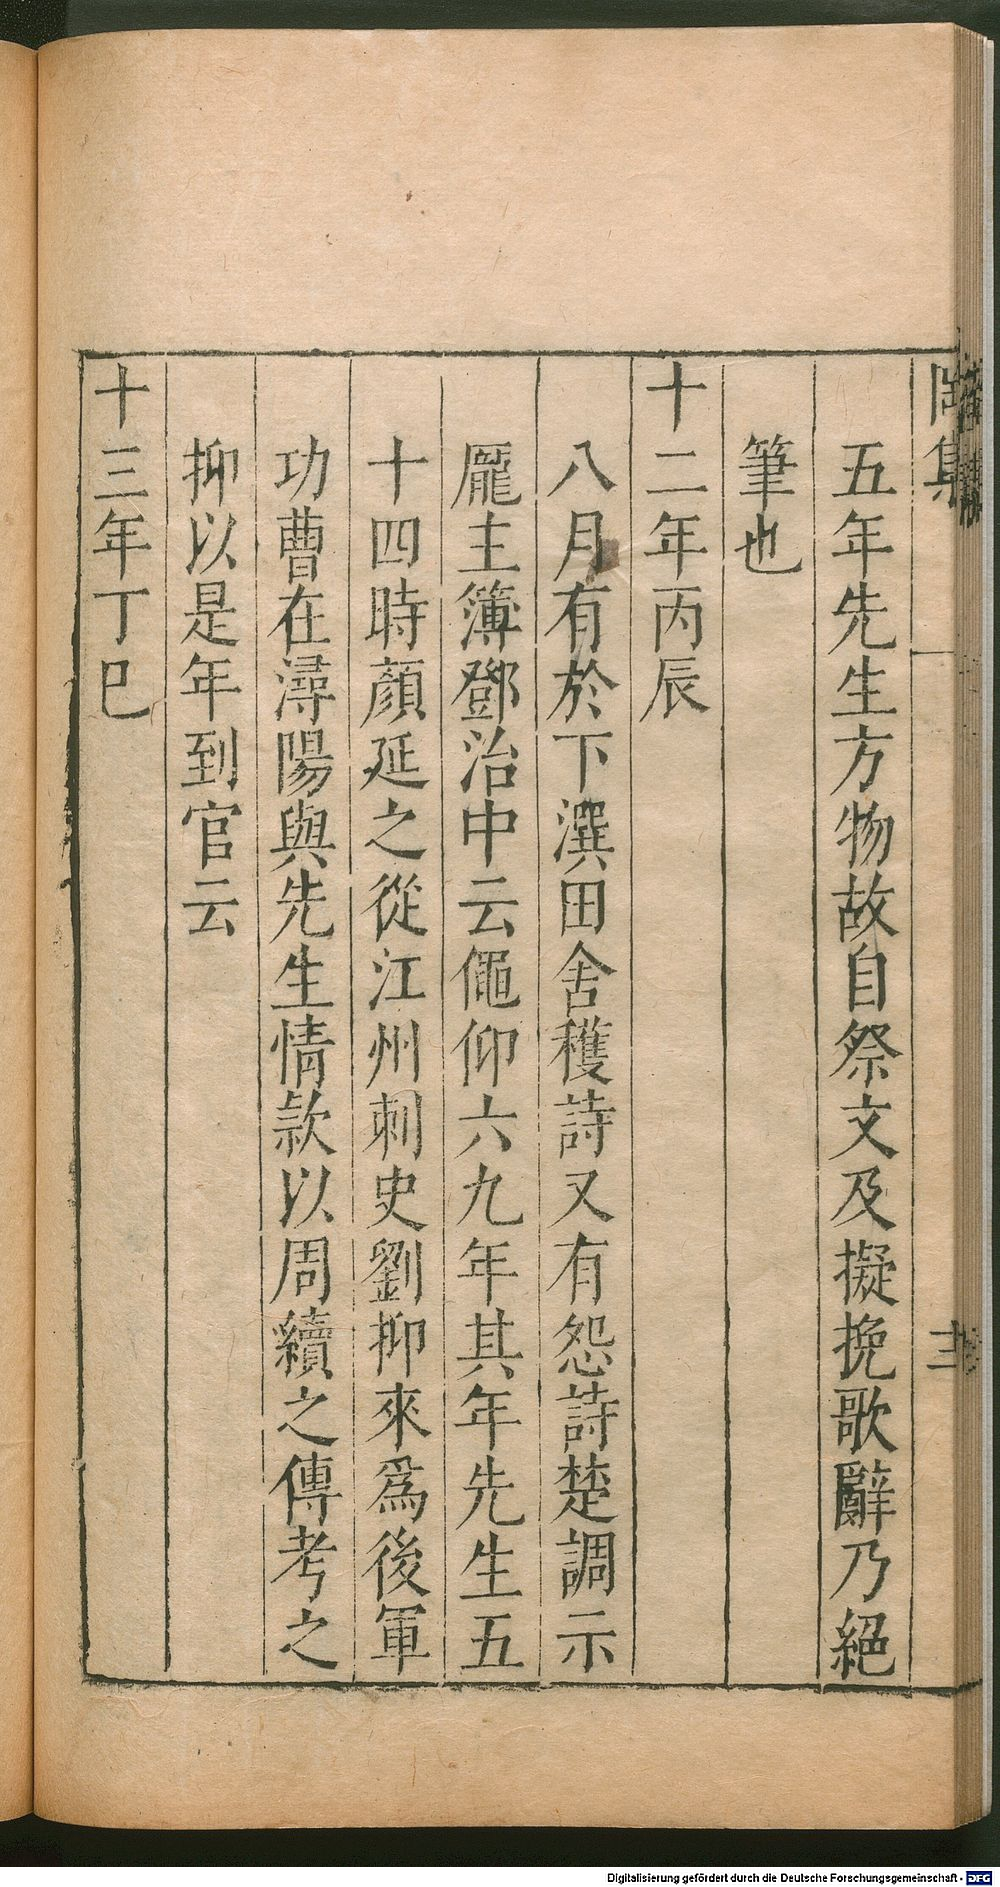 陶集
十二
五年先生方物故自祭文及擬挽歌辭乃絕
筆也
十二年丙辰
八月有於下潠田舍穫詩又有怨詩楚調示
龐主簿鄧治中云僶仰六九年其年先生五
十四時顏延之從江州刺史劉抑來為後軍
功曹在潯陽與先生情款以周續之傳考之
抑以是年到官云
十三年丁巳
Digitalisierung gefördert durch die Deutsche Forschungsgemeinschaft - DFG